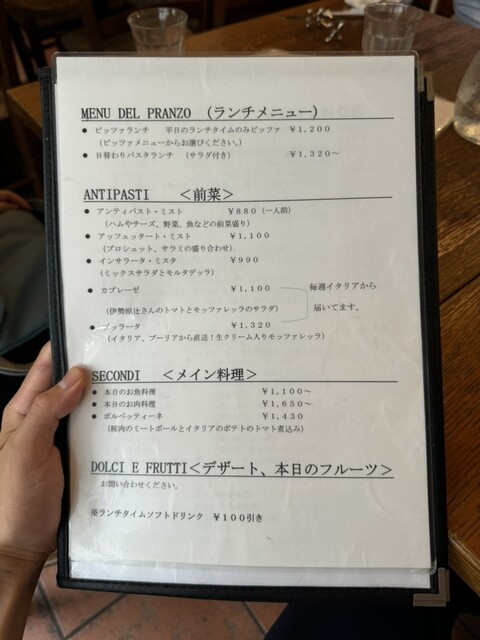 MENU DEL PRANZO （ランチメニュー）
● ピッツァランチ 平日のランチタイムのみピッツァ ￥1,200
（ピッツァメニューからお選びください。）
● 日替わりパスタランチ （サラダ付き） ￥1,320～
ANTIPASTI ＜前菜＞
● アンティパスト・ミスト ￥880（一人前）
（ハムやチーズ、野菜、魚などの前菜盛り）
● アッフェッタート・ミスト ￥1,100
（プロシュット、サラミの盛り合わせ）
● インサラータ・ミスタ ￥990
（ミックスサラダとモルタデッラ）
● カプレーゼ ￥1,100 毎週イタリアから
（伊勢原辻さんのトマトとモッツァレッラのサラダ） 届いてます。
● ブッラータ ￥1,320
（イタリア、プーリアから直送！生クリーム入りモッツァレッラ）
SECONDI ＜メイン料理＞
● 本日のお魚料理 ￥1,100～
● 本日のお肉料理 ￥1,650～
● ポルペッティーネ ￥1,430
（豚肉のミートボールとイタリアのポテトのトマト煮込み）
DOLCI E FRUTTI＜デザート、本日のフルーツ＞
お問い合わせください。
※ランチタイムソフトドリンク ￥100引き